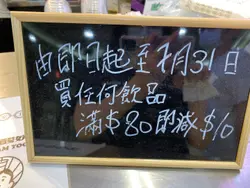 由即日起至7月31日
買任何飲品
滿$80即減$10